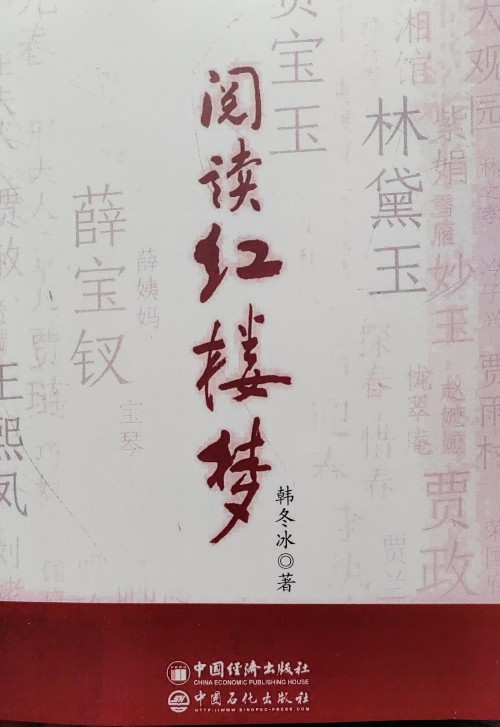 阅读红楼梦
韩冬冰◎著
大观园
林黛玉
湘馆
紫鹃
雪雁
妙玉
栊翠庵
赵嬷嬷
贾雨村
贾政
贾兰
贾宝玉
探春
惜春
薛宝钗
薛姨妈
宝琴
元春
邢夫人
贾琏
巧
贾赦
王熙凤
刘
中国经济出版社
CHINA ECONOMIC PUBLISHING HOUSE
中国石化出版社
HTTP://WWW.SINOPEC-PRESS.COM